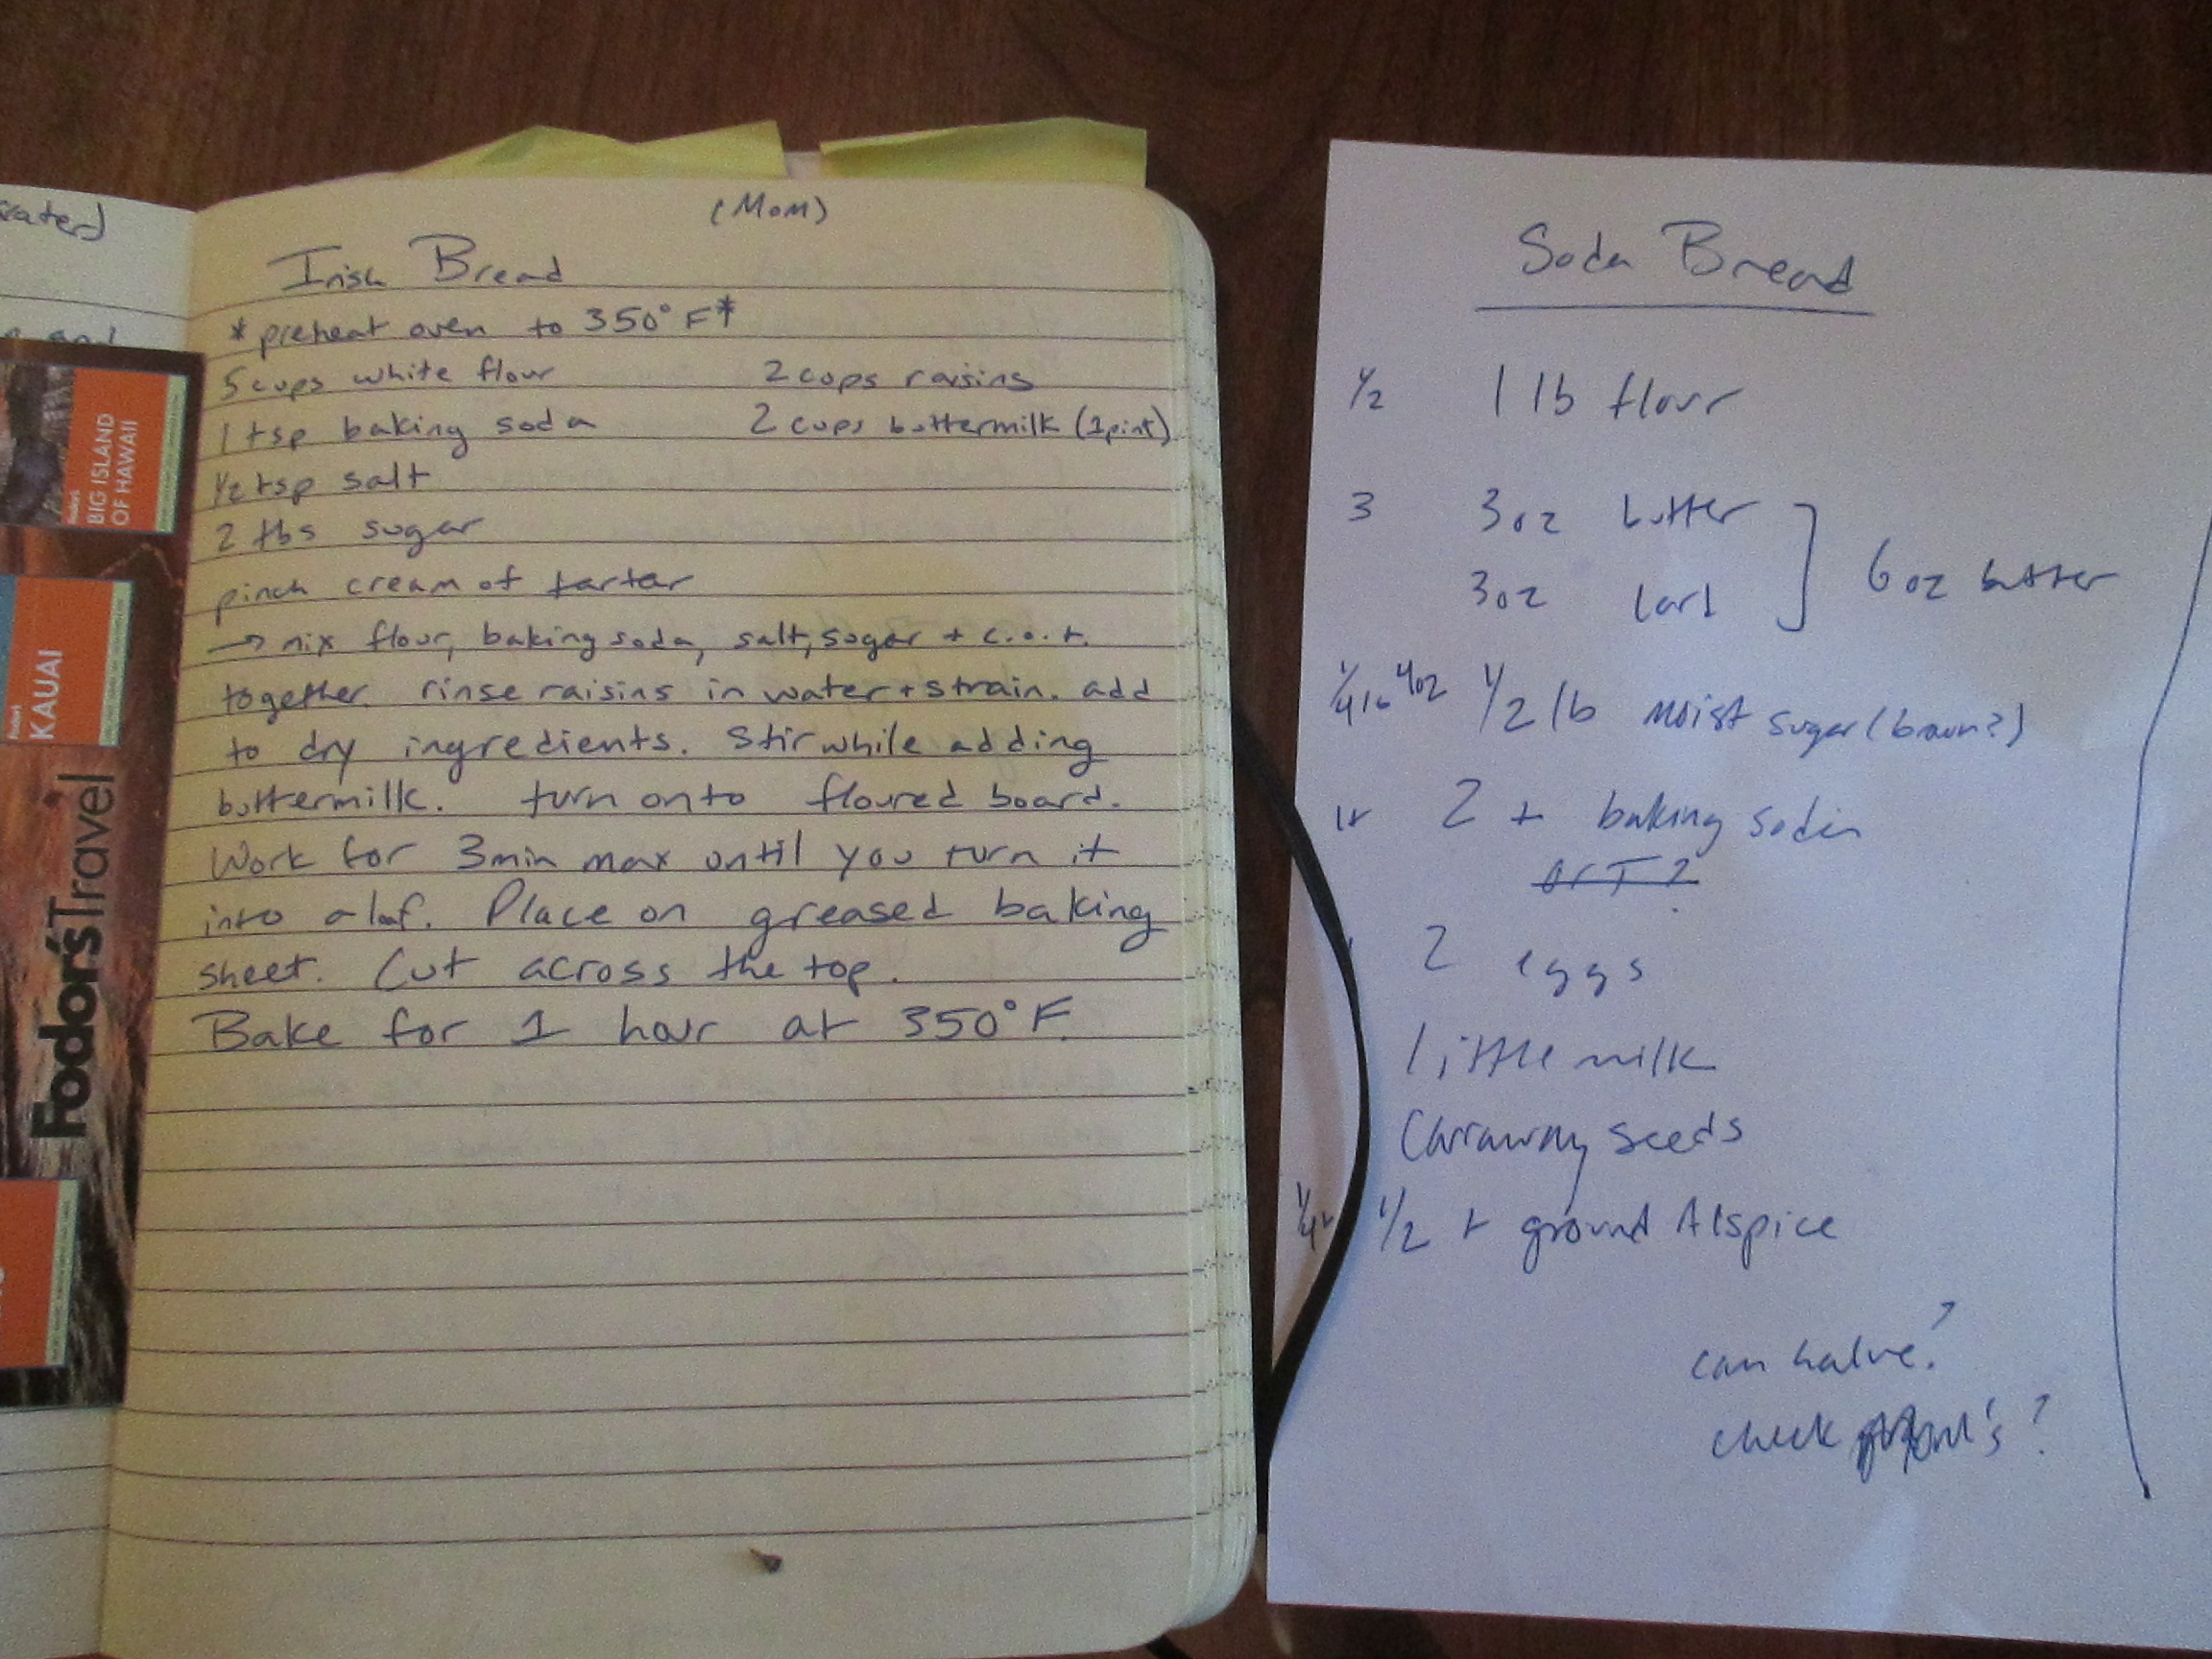 (Mom)
Irish Bread
*preheat oven to 350°F*
5 cups white flour 2 cups raisins
1 tsp baking soda 2 cups buttermilk (1pint)
1/2 tsp salt
2 tbs sugar
pinch cream of tartar
→ mix flour, baking soda, salt, sugar + c.o.t.
together. rinse raisins in water + strain. add
to dry ingredients. Stir while adding
buttermilk. turn onto floured board.
Work for 3min max until you turn it
into a loaf. Place on greased baking
sheet. Cut across the top.
Bake for 1 hour at 350°F.
Soda Bread
1/2 1 lb flour
3 3oz butter
3oz lard
6oz butter
1/4 lb 4oz 1/2 lb moist sugar (brown?)
1t 2 t baking soda
or T?
2 eggs
little milk
Caraway seeds
1/4 t 1/2 t ground Alspice
can halve?
check
Fodor's
BIG ISLAND
OF HAWAII
Fodor's
KAUAI
Fodor'sTravel